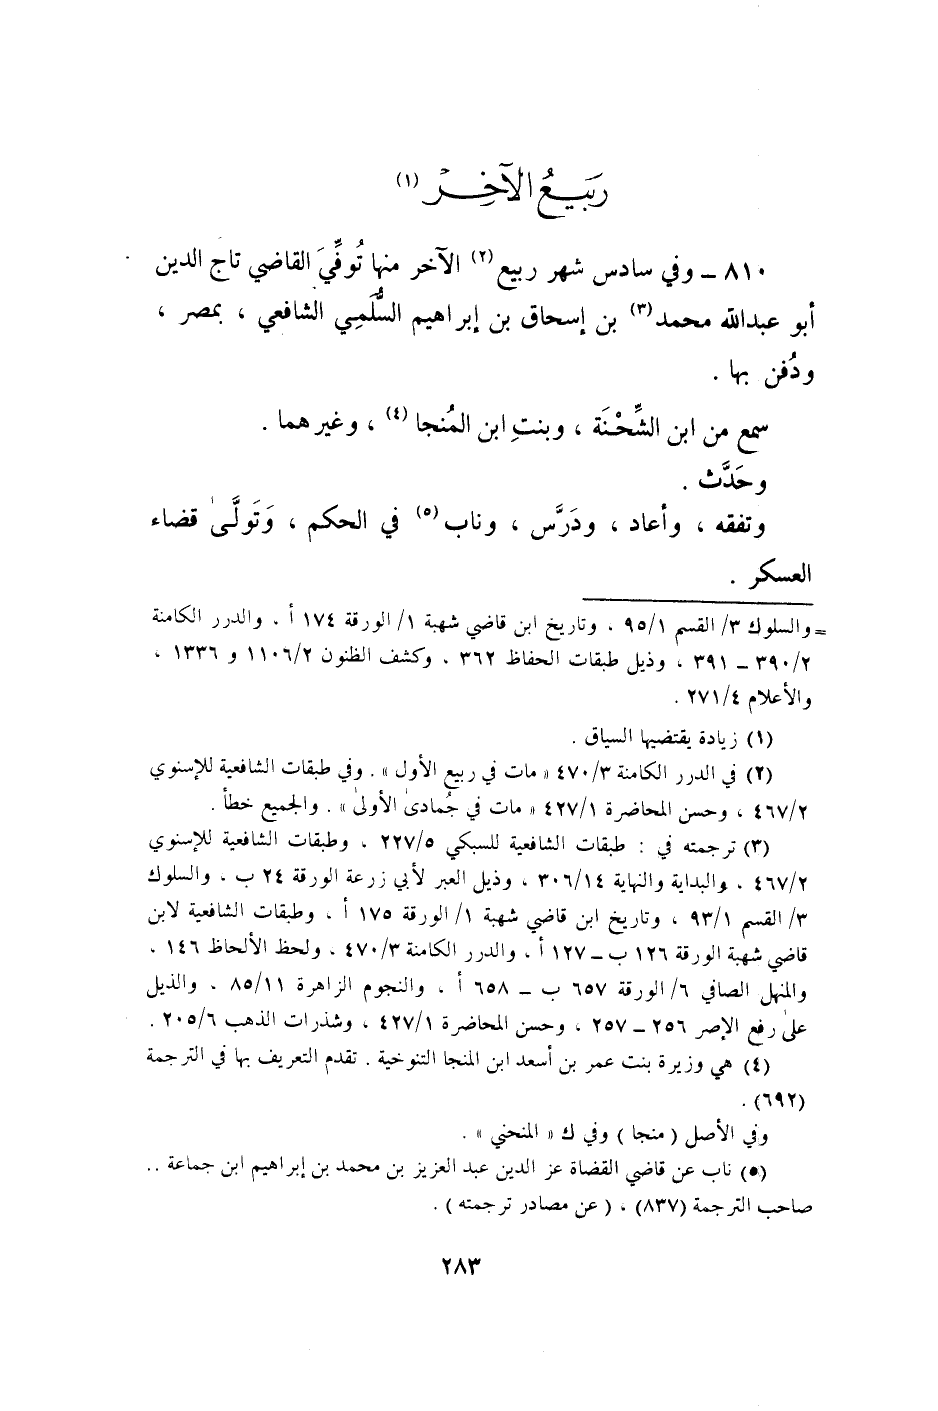 رَبيعُ الآخِر (١)
٨١٠ ــ وفي سادس شهر ربيع (٢) الآخر منها تُوفِّيَ القاضي تاج الدين
أبو عبدالله محمد (٣) بن إسحاق بن إبراهيم السُّلَمِي الشافعي ، بمصر ،
ودُفن بها .
سمع من ابن الشِّحْنَة ، وبنتِ ابن المُنجا (٤) ، وغيرهما .
وحَدَّث .
وتفقه ، وأعاد ، ودَرَّس ، وناب (٥) في الحكم ، وَتَولَّىٰ قضاء
العسكر .
= والسلوك ٣/ القسم ٩٥/١ ، وتاريخ ابن قاضي شهبة ١/ الورقة ١٧٤ أ ، والدرر الكامنة
٣٩٠/٢ ــ ٣٩١ ، وذيل طبقات الحفاظ ٣٦٢ ، وكشف الظنون ١١٠٦/٢ و ١٣٣٦ ،
والأعلام ٢٧١/٤ .
(١) زيادة يقتضيها السياق .
(٢) في الدرر الكامنة ٤٧٠/٣ « مات في ربيع الأول » . وفي طبقات الشافعية للإسنوي
٤٦٧/٢ ، وحسن المحاضرة ٤٢٧/١ « مات في جُمادىٰ الأولىٰ » . والجميع خطأ .
(٣) ترجمته في : طبقات الشافعية للسبكي ٢٢٧/٥ ، وطبقات الشافعية للإسنوي
٤٦٧/٢ ، والبداية والنهاية ٣٠٦/١٤ ، وذيل العبر لأبي زرعة الورقة ٢٤ ب ، والسلوك
٣/ القسم ٩٣/١ ، وتاريخ ابن قاضي شهبة ١/ الورقة ١٧٥ أ ، وطبقات الشافعية لابن
قاضي شهبة الورقة ١٢٦ ب ــ ١٢٧ أ ، والدرر الكامنة ٤٧٠/٣ ، ولحظ الألحاظ ١٤٦ ،
والمنهل الصافي ٦/ الورقة ٦٥٧ ب ــ ٦٥٨ أ ، والنجوم الزاهرة ٨٥/١١ ، والذيل
علىٰ رفع الإصر ٢٥٦ ــ ٢٥٧ ، وحسن المحاضرة ٤٢٧/١ ، وشذرات الذهب ٢٠٥/٦ .
(٤) هي وزيرة بنت عمر بن أسعد ابن المنجا التنوخية . تقدم التعريف بها في الترجمة
(٦٩٢) .
وفي الأصل ( منجا ) وفي ك « المنحني » .
(٥) ناب عن قاضي القضاة عز الدين عبد العزيز بن محمد بن إبراهيم ابن جماعة ..
صاحب الترجمة (٨٣٧) ، ( عن مصادر ترجمته ) .
٢٨٣